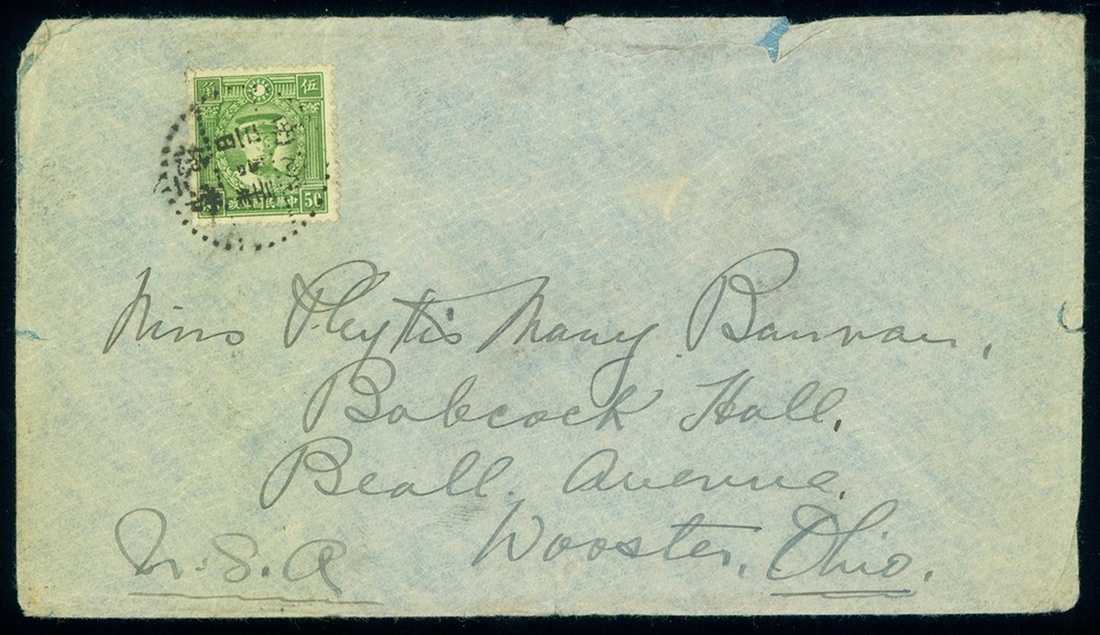 伍 角
中華民國郵政 50
Miss Phyllis Mary Bannan,
Babcock Hall,
Beall Avenue
Wooster, Ohio.
U.S.A